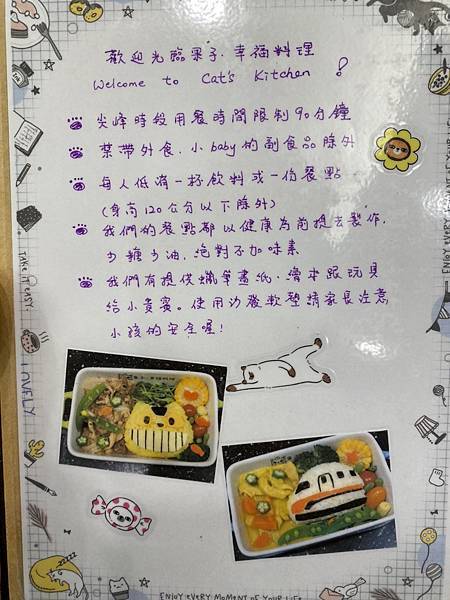 歡迎光臨果子.幸福料理
Welcome to Cat's Kitchen !
尖峰時段用餐時間限制90分鐘
禁帶外食.小baby的副食品除外
每人低消一杯飲料或一份餐點
(身高120公分以下除外)
我們的餐點都以健康為前提去製作.
少糖少油.絕對不加味素
我們有提供蠟筆畫紙.繪本跟玩具
給小貴賓。使用沙發軟墊請家長注意
小孩的安全喔!
TAKE IT EASY
LOVELY
ENJOY EVERY MOMENT OF YOUR LIFE